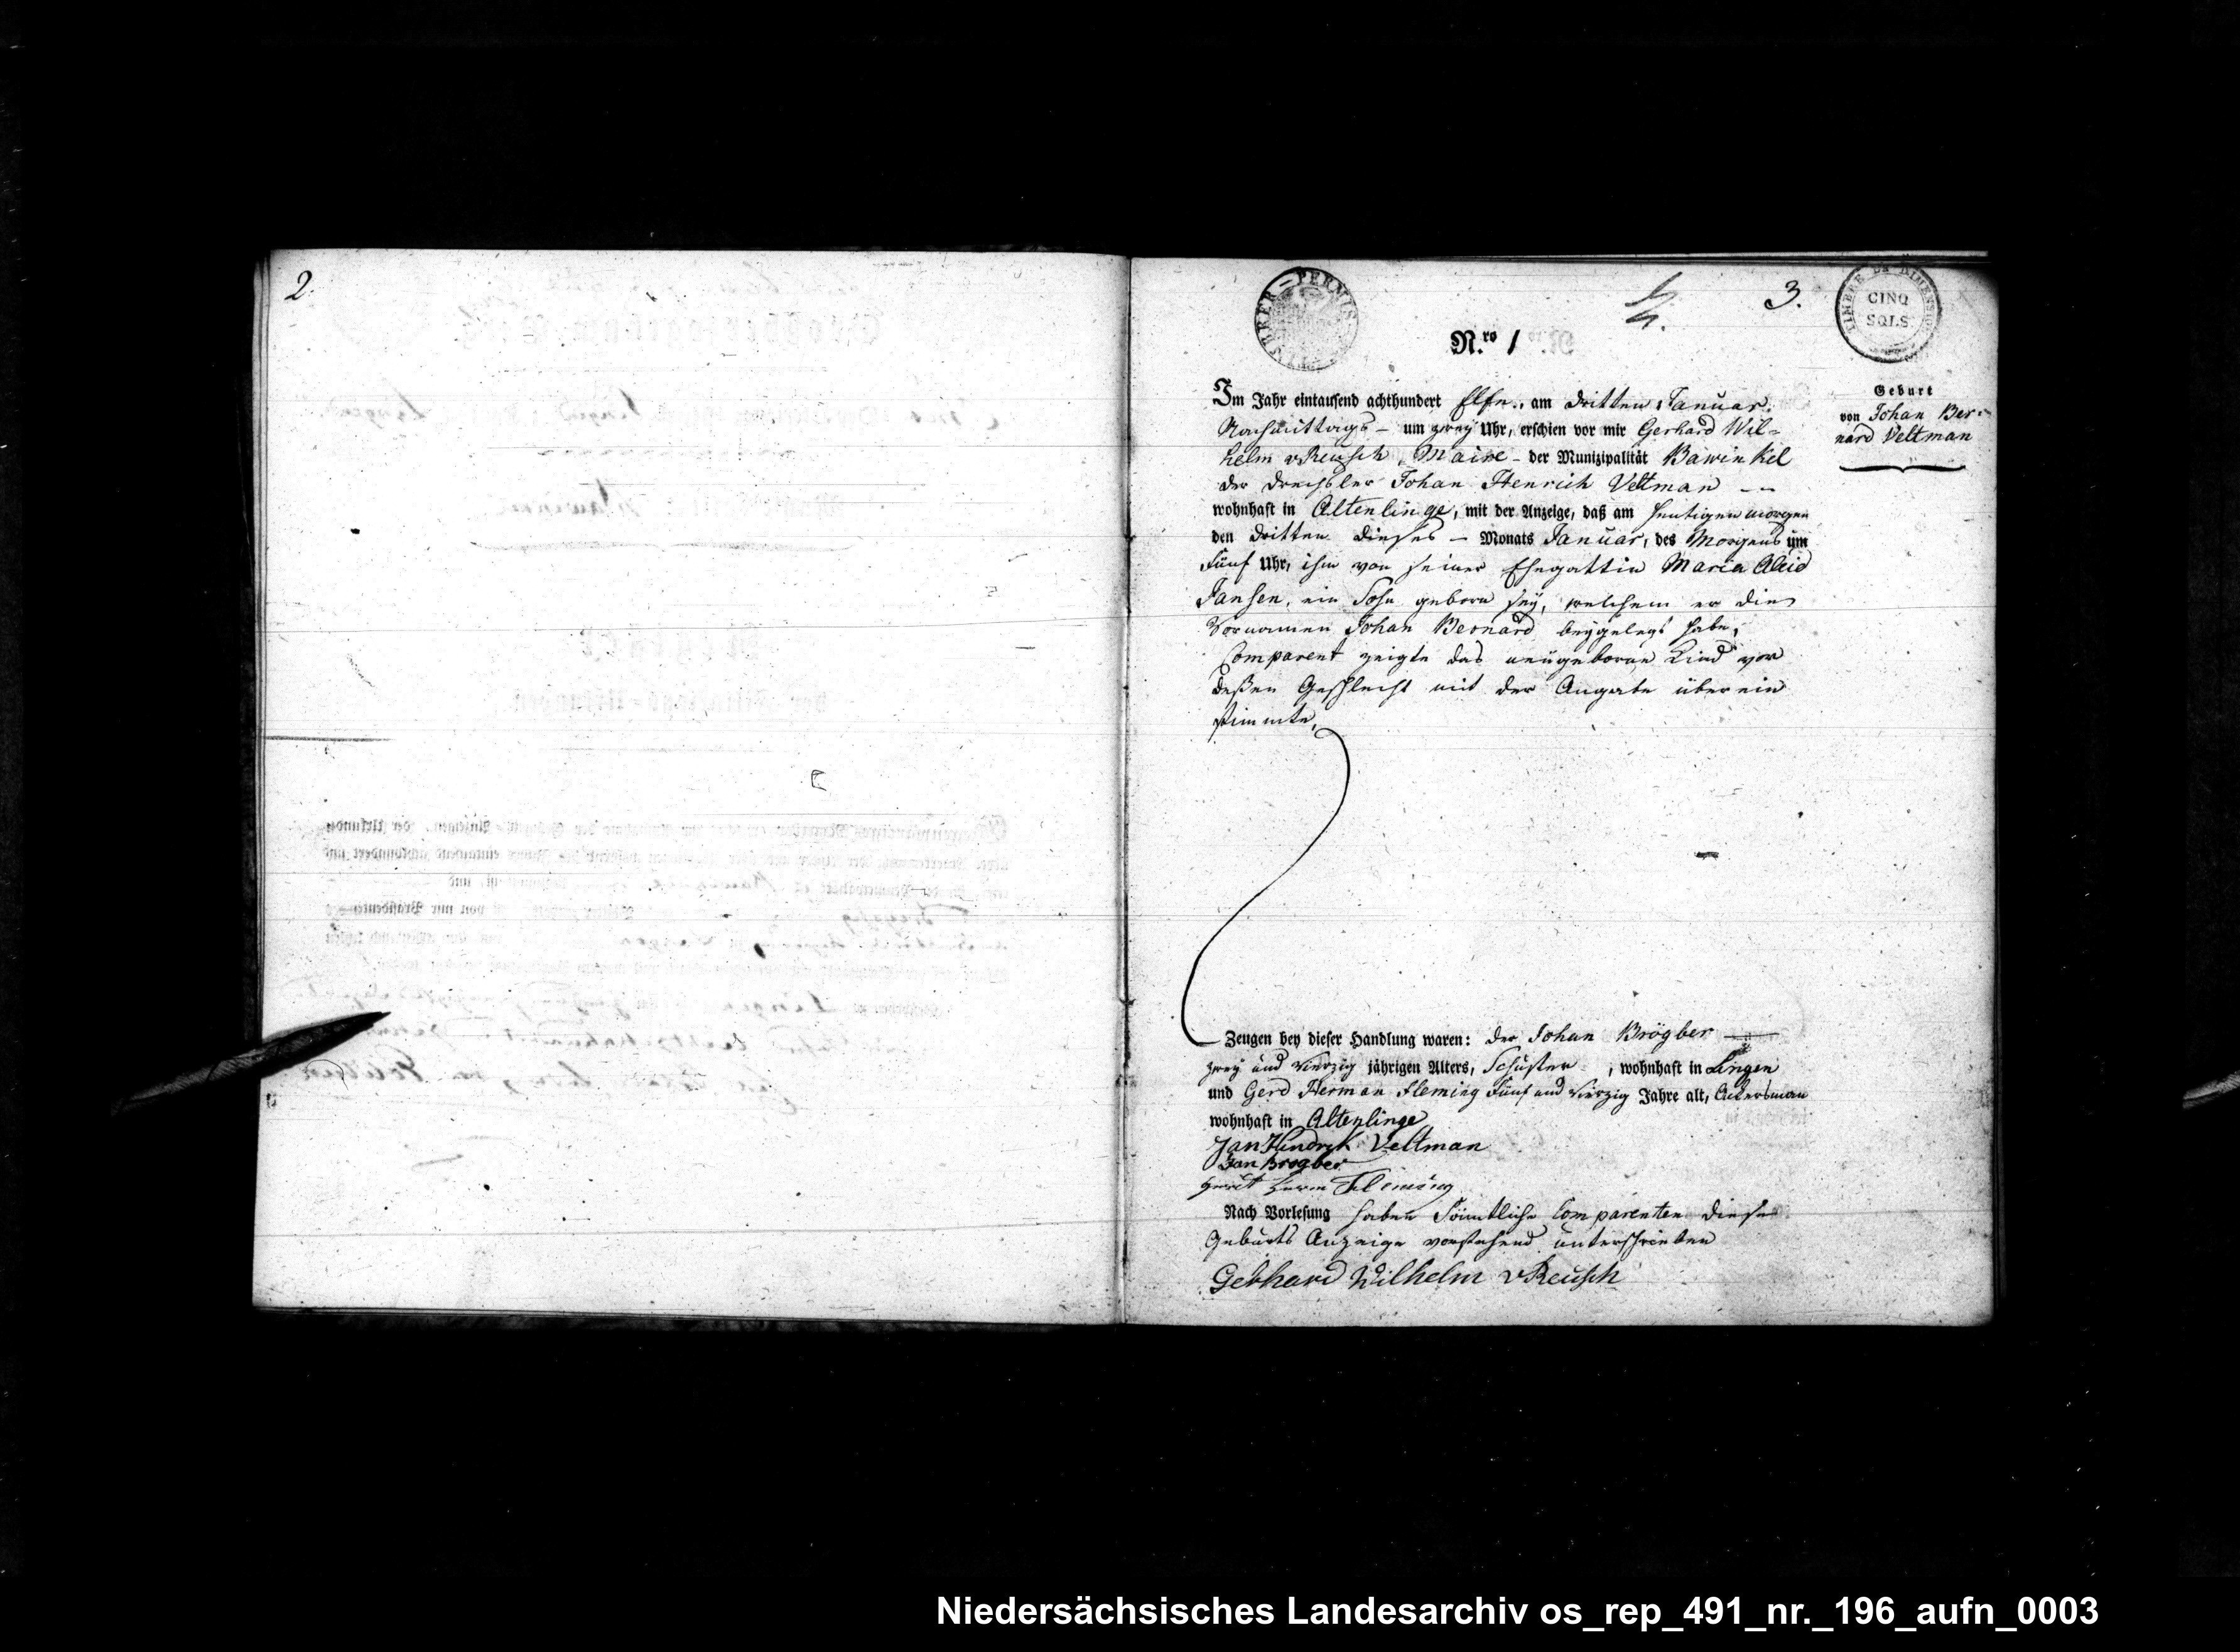 2.
TIMBRE DE DIMENSION
CINQ
SOLS
3.
N.ro 1
Geburt
von Johan Ber-
nard Veltman
Im Jahr eintausend achthundert Elfe, am dritten Januar
Nachmittags – um zwey Uhr, erschien vor mir Gerhard Wil-
helm v Reusch, Maire – der Munizipalität Bawinkel
der Drechsler Johan Henrich Veltman
wohnhaft in Altenlinge, mit der Anzeige, daß am heutigen morgen
den dritten dieses – Monats Januar, des Morgens um
Fünf Uhr, ihm von seiner Ehegattin Maria Aleid
Jansen, ein Sohn geborn sey, welchem er die
Vornamen Johan Bernard beygelegt habe,
Comparent zeigte das neugeborne Kind vor
deßen Geschlecht mit der Angabe überein
stimmte,
Zeugen bey dieser Handlung waren: der Johan Brögber
zwey und vierzig jährigen Alters, Schuster, wohnhaft in Lingen
und Gerd Herman Fleming Fünf und vierzig Jahre alt, Ackersman
wohnhaft in Altenlinge
Jan Hendryk Veltman
Jan Brogber
Gerrit Herm Fleming
Nach Vorlesung haben Sämtliche Comparenten diese
Geburts Anzeige vorstehend unterschrieben
Gerhard Wilhelm v Reusch
Niedersächsisches Landesarchiv os_rep_491_nr._196_aufn_0003